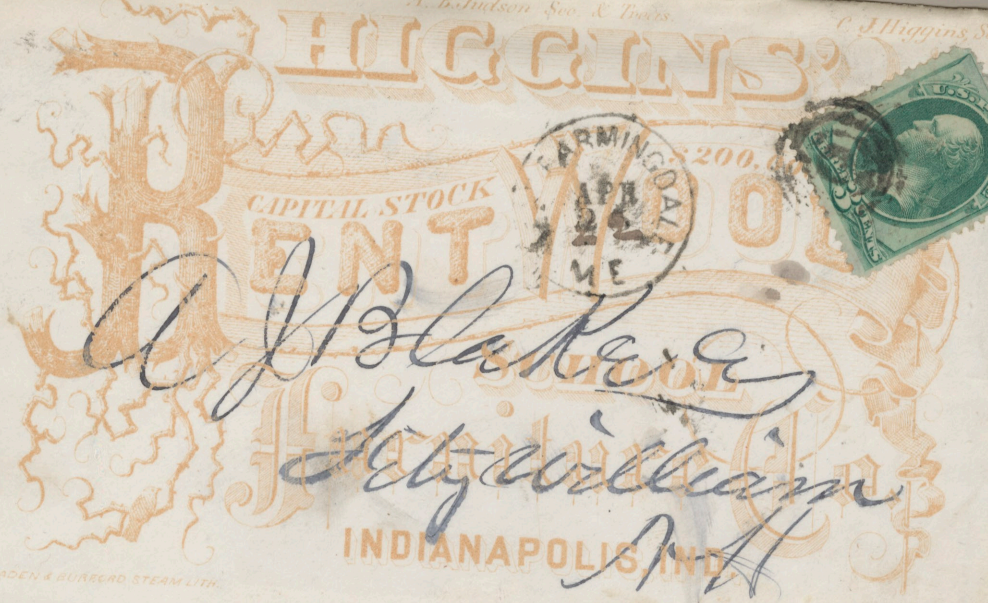 Judson Sec. & Treas.
C. J. Higgins,
HIGGINS'
CAPITAL STOCK $200,
BENT WOOD
FARMINGDALE
APR
ME
3 CENTS
A J Blake
SCHOOL
Furniture Co
Fitzwilliam
INDIANAPOLIS, IND.
N-H
STEAM LITH.